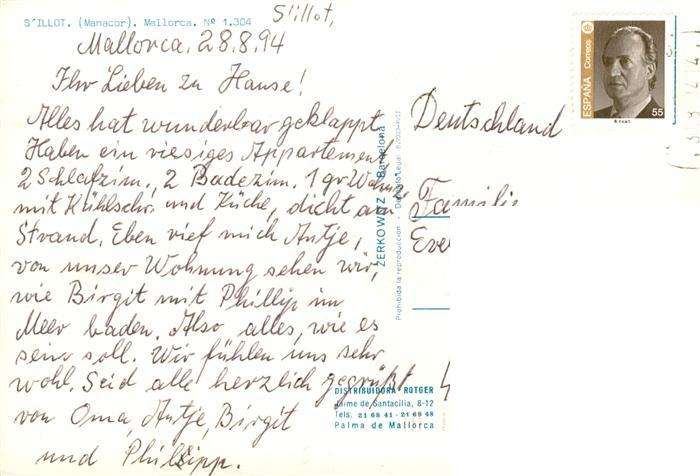 S'illot,
S'ILLOT. (Manacor). Mallorca. Nº 1.304
Mallorca, 28.8.94
Ihr Lieben zu Hause!
Alles hat wunderbar geklappt
Haben ein riesiges Appartement
2 Schlafzim., 2 Badezim. 1 gr. Wohnz.
mit Kühlschr. und Küche, dicht am
Strand. Eben rief mich Antje,
von unser Wohnung sehen wir,
wie Birgit mit Phillip im
Meer baden. Also alles, wie es
sein soll. Wir fühlen uns sehr
wohl. Seid alle herzlich gegrüßt
von Oma, Antje, Birgit
und Philipp.
ZERKOWITZ - Barcelona
Prohibida la reproducción - Depósito Legal
DISTRIBUIDORA ROTGER
Jaime de Santacilia, 8-12
Tels. 21 68 41 - 21 69 48
Palma de Mallorca
ESPAÑA
Correos
55
Deutschland
Familie